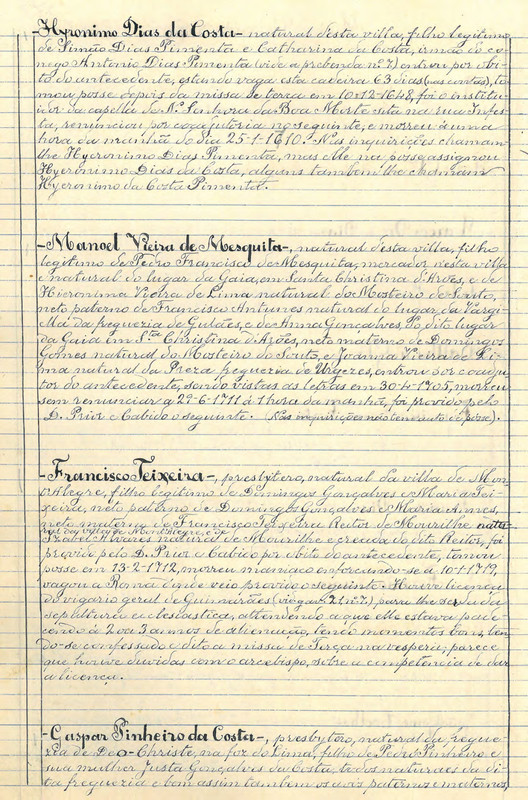 -Hyeronimo Dias da Costa- natural d'esta villa, filho legitimo
de Simão Dias Pimenta e Catharina da Costa, irmão do co-
nego Antonio Dias Pimenta (vide a prebenda nº 7) entrou por obi-
to do antecedente, estando vaga esta cadeira 63 dias (nas contas), to-
mou posse depois da missa de terça em 10-12-1648, foi o institui-
dor da capella de N.ª Senhora da Boa Morte sita na rua Infes-
ta, renunciou por coadjutoria no seguinte, e morreu á uma
hora da manhã do dia 25-1-1610. Nas inquirições chamam
lhe Hyeronimo Dias Pimenta, mas elle na posse assignou
Hyeronimo Dias da Costa, alguns tambem lhe chamam
Hyeronimo da Costa Pimentel.
-Manoel Vieira de Mesquita-, natural d'esta villa, filho
legitimo de Pedro Francisco de Mesquita, mercador n'esta villa
e natural do lugar da Gaia, em Santa Christina d'Arões, e de
Hieronima Vieira de Lima natural do Mosteiro do Souto,
neto paterno de Francisco Antunes natural do lugar da
da freguezia de Gulães, e de Anna Gonçalves, do dito lugar
da Gaia em S.ta Christina de Arões, neto materno de Domingos
Gomes natural do Mosteiro do Souto, e Joanna Vieira de Li-
ma natural da freguezia de Urgezes, entrou por coadju-
tor do antecedente, sendo vistas as letras em 30-4-1705, morreu
sem renunciar a 29-6-1711 á 1 hora da manhã, foi provido pelo
D. Prior e Cabido o seguinte. (Nas inquirições não tem auto de posse).
-Francisco Teixeira-, presbytero, natural da villa de Mon-
t'Alegre, filho legitimo de Domingos Gonçalves e Maria Tei-
xeira, neto paterno de Domingos Gonçalves e Maria Annes,
neto materno de Francisco Teixeira Reitor de Mourilhe natu-
ral da villa de Mont'Alegre e de
Izabel Alvares natural de Mourilhe e creada do dito Reitor, foi
provido pelo D. Prior e Cabido por obito do antecedente, tomou
posse em 13-2-1712, morreu maniaco enforcando-se a 10-1-1719,
vagou a Roma d'onde veio provido o seguinte. Houve licença
do vigario geral de Guimarães para lhe ser dada
sepultura ecclesiastica, attendendo a que elle estava pade-
cendo á 2 ou 3 annos de alienação, tendo momentos bons, ten-
do-se confessado e dito a missa de Terça na vespera; parece
que houve duvidas com o arcebispo, sobre a competencia de dar
a licença.
-Gaspar Pinheiro da Costa-, presbytero, natural da fregue-
zia de Deo-Christe, na foz do Lima, filho de Pedro Pinheiro e
sua mulher Justa Gonçalves da Costa, todos naturaes da di-
ta freguezia e bem assim tambem os avós paternos e maternos,